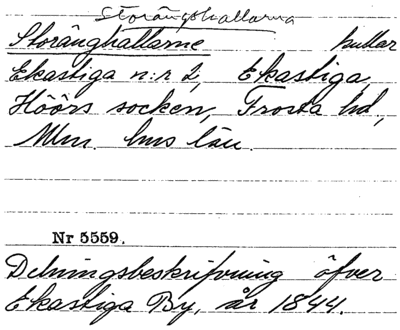 Storängshallarna
Storänghallarne kullar
Ekastiga n:r 2, Ekastiga,
Höörs socken, Frosta hd,
Mlm. hus län.
Nr 5559.
Delningsbeskrifvning öfver
Ekastiga By, år 1844.